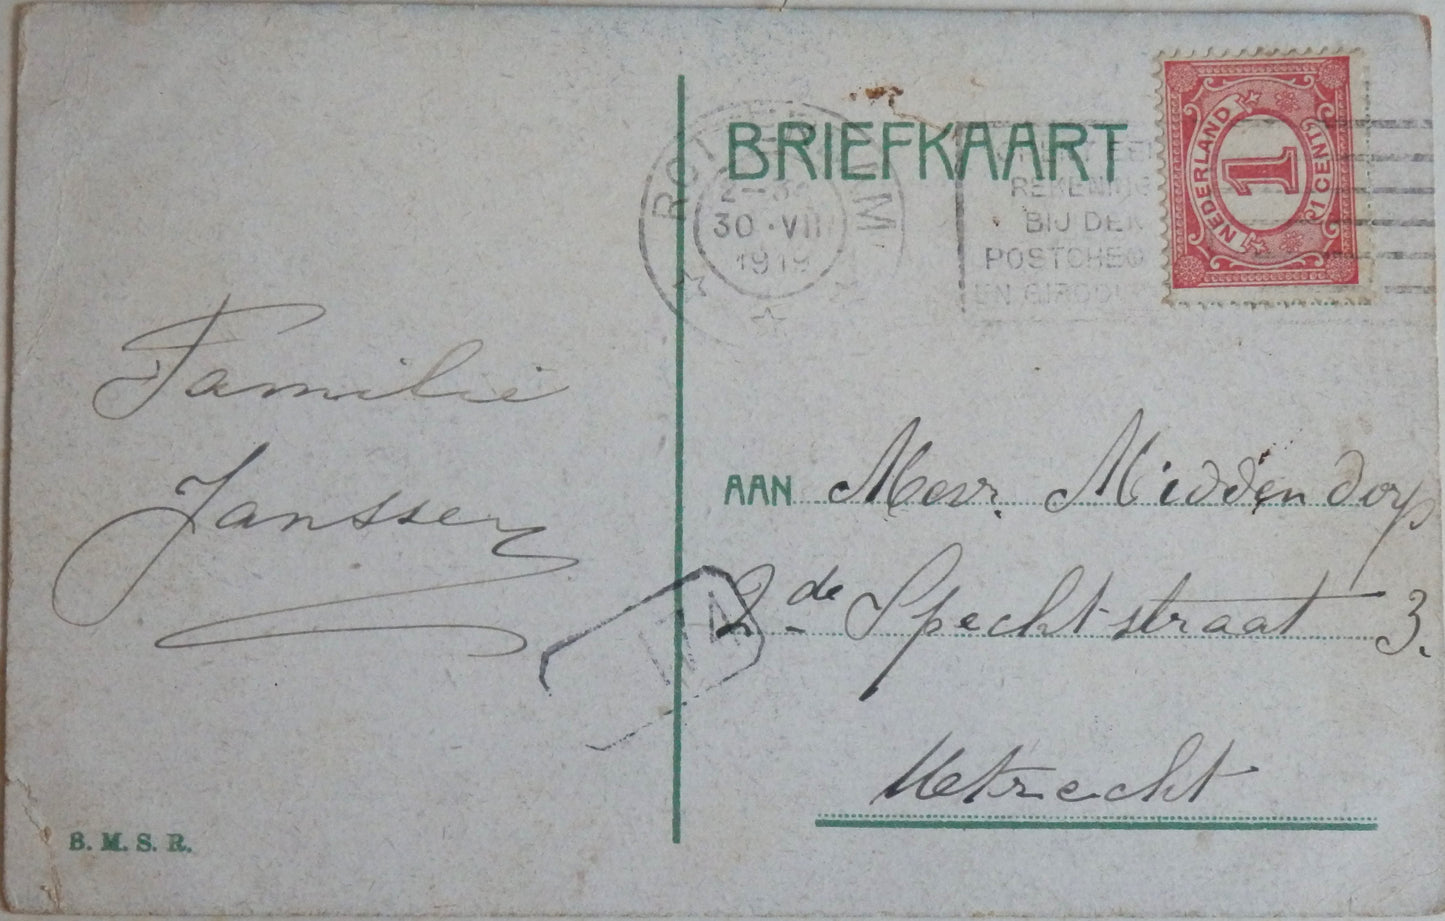 BRIEFKAART
30·VII
1919
REKENING
BIJ DEN
POSTCHEQ
NEDERLAND
1
1 CENT
Familie
Janssen
AAN Mevr. Middendorp
2de Spechtstraat 3.
Utrecht
174
B. M. S. R.